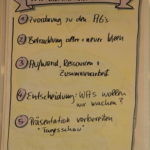 1 Zuordnung zu den AG's
2 Betrachtung alter + neuer Ideen
3 Aufwand, Ressourcen +
Zusammenarbeit
4 Entscheidung: WAS wollen
wir machen?
5 Präsentation vorbereiten
"Tagesschau"